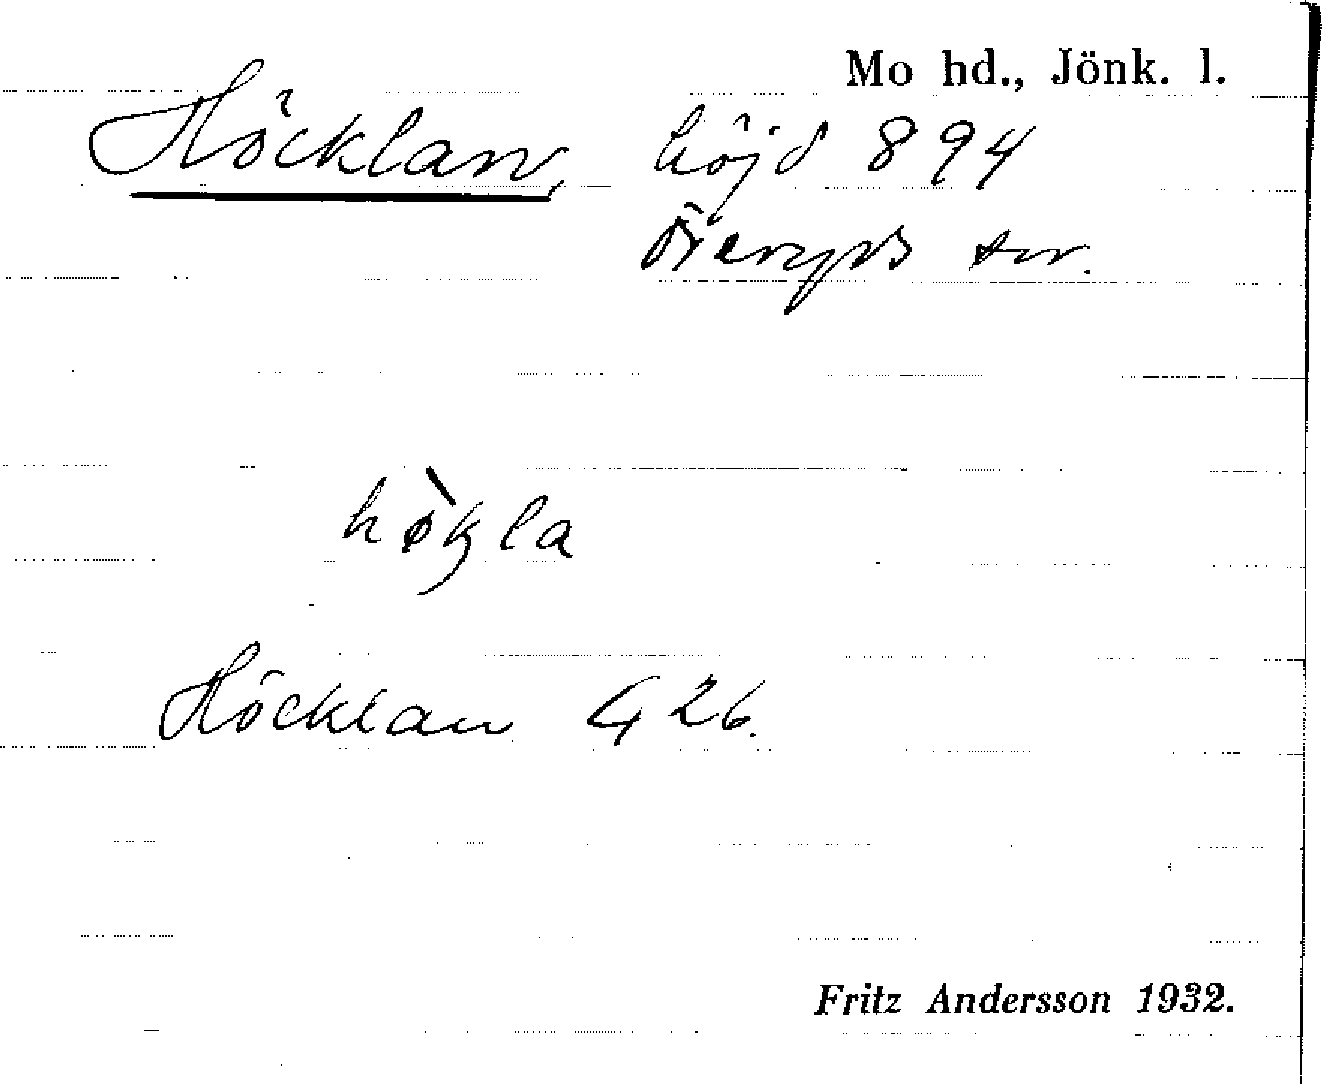 Mo hd., Jönk. l.
Höcklan, höjd 894
sv.
hö̀kla
Höcklan G 26.
Fritz Andersson 1932.